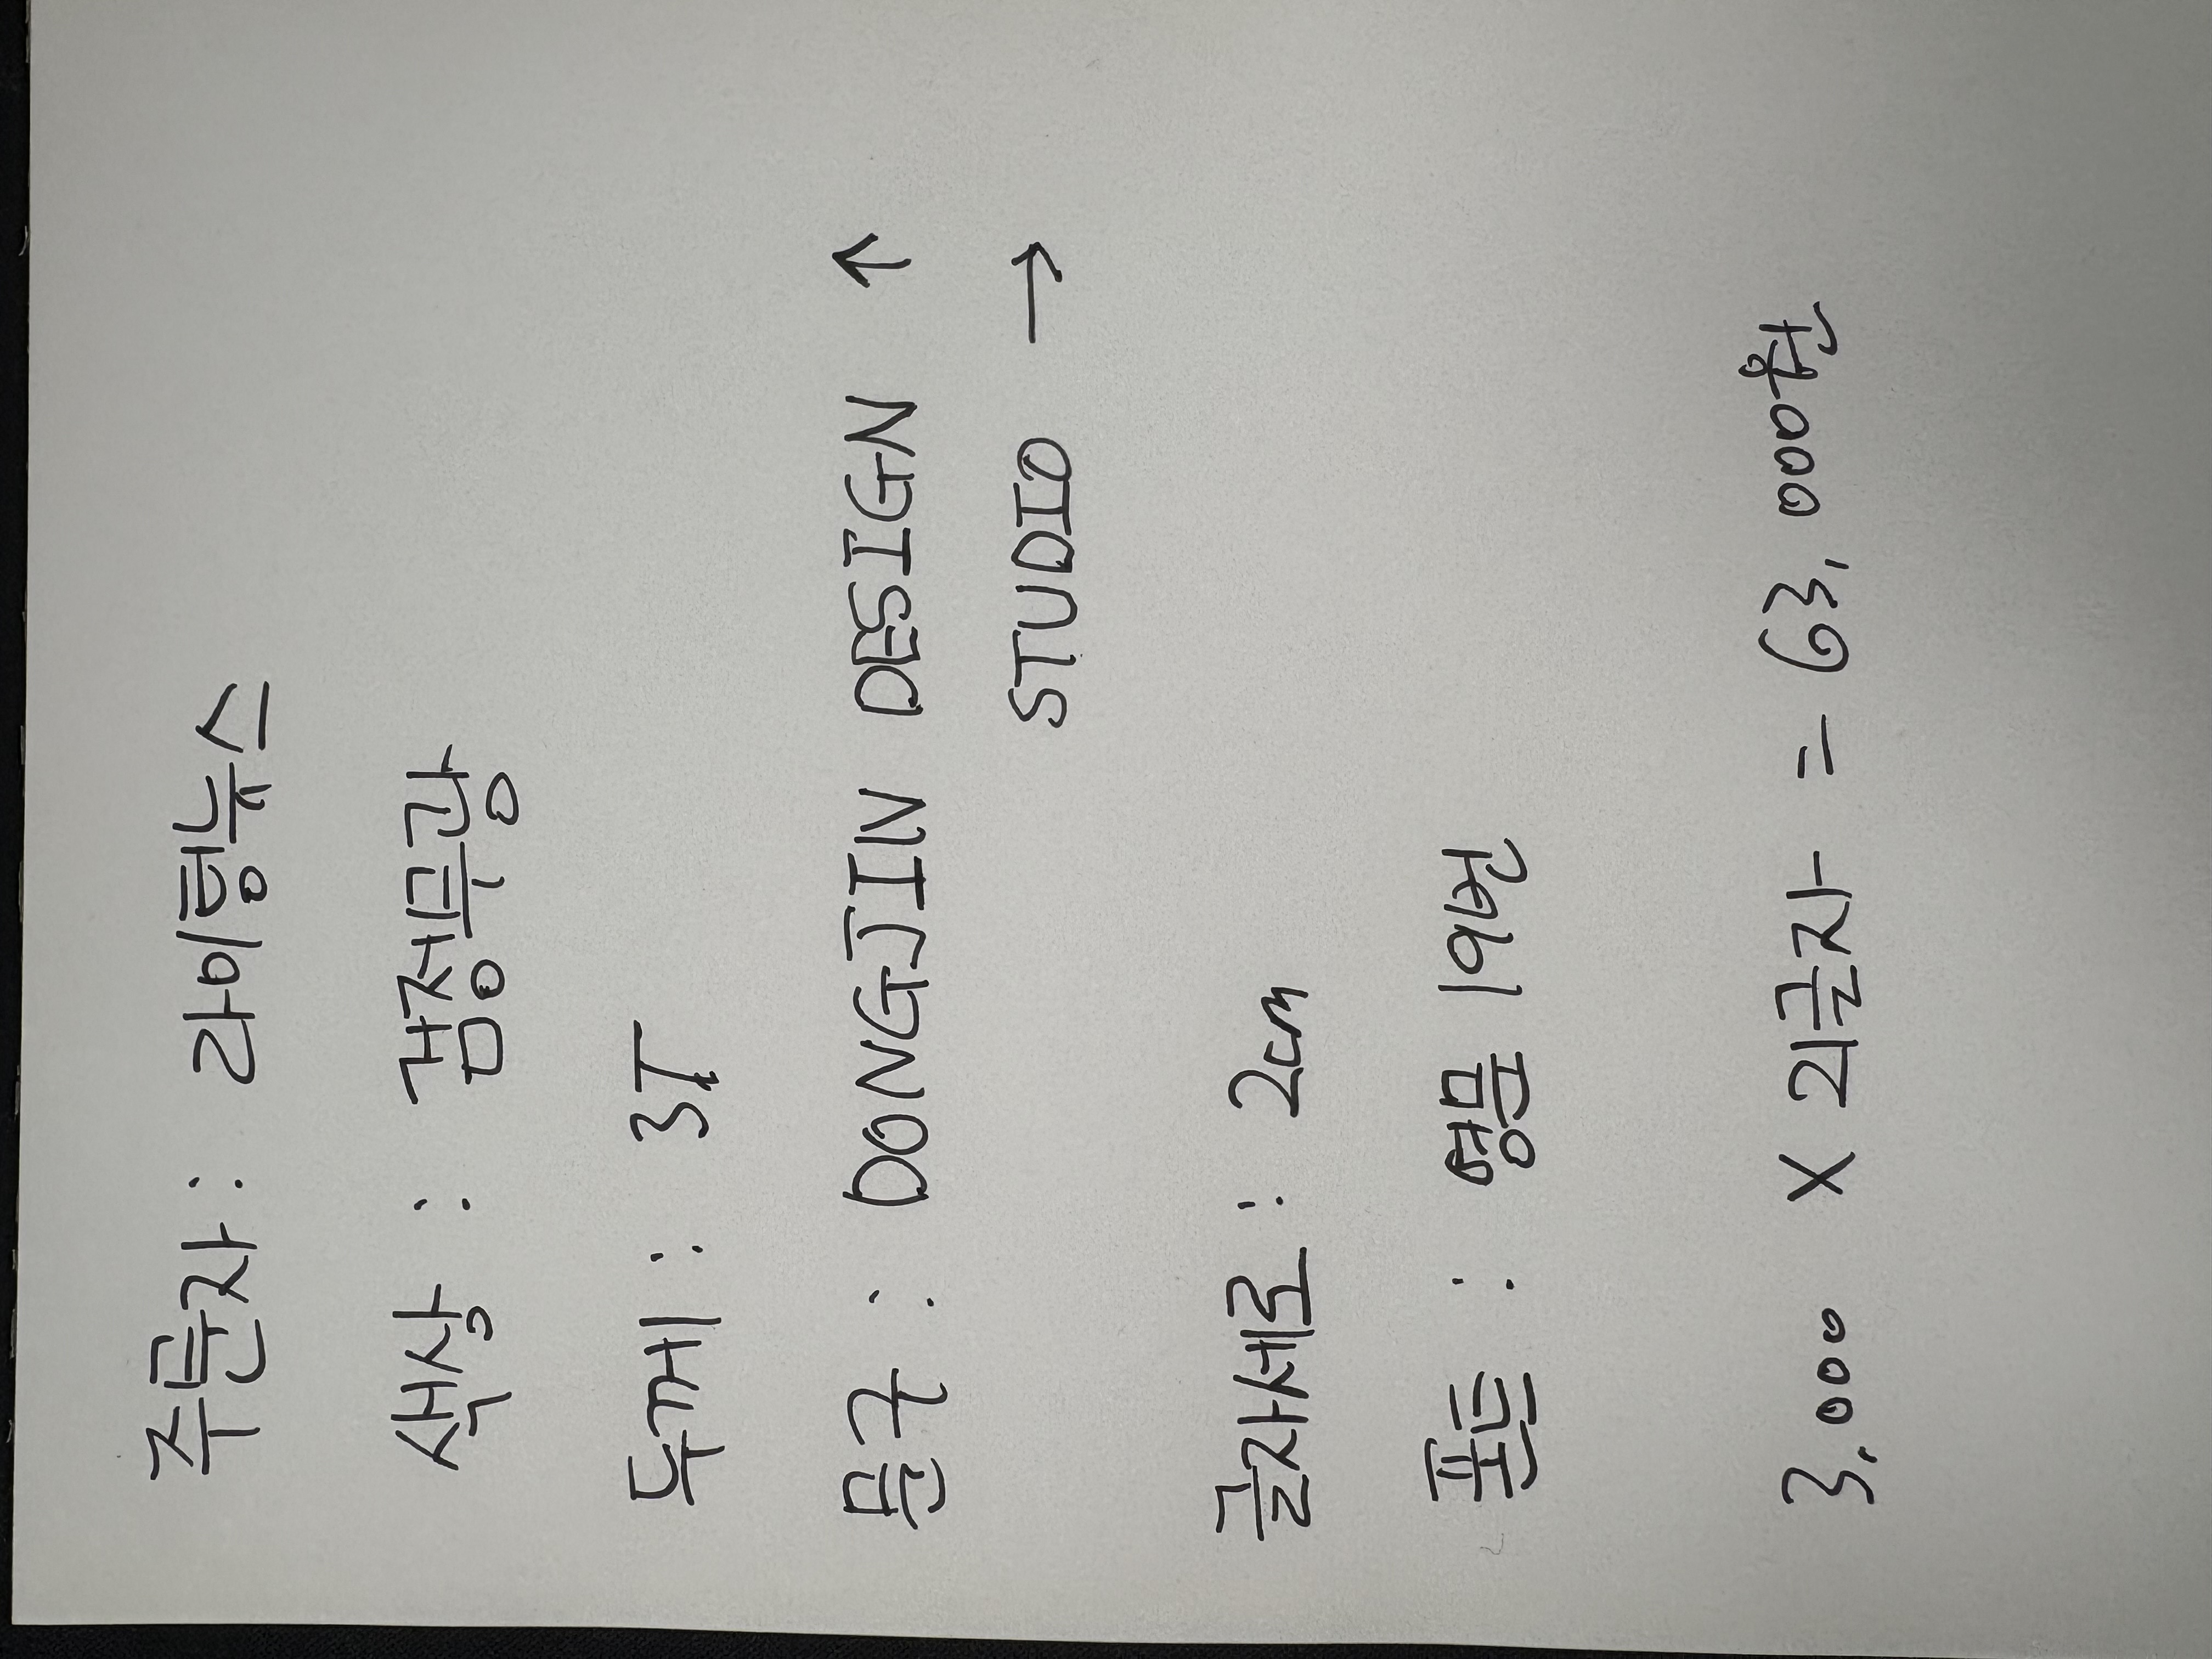 주문자 : 라이팅뉴스
색상 : 검정무광
두께 : 3T
문구 : DONGJIN DESIGN ↑
STUDIO →
글자세로 : 2cm
폰트 : 영문 19번
3,000 X 21글자 = 63,000원